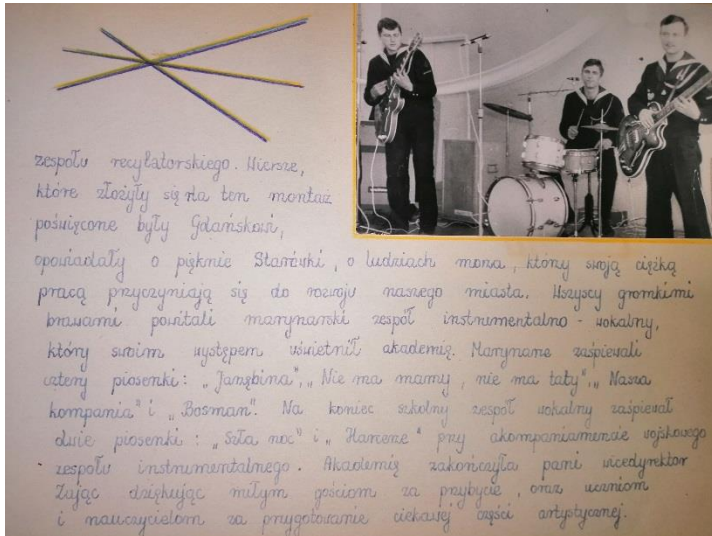 zespołu recytatorskiego. Wiersze,
które złożyły się na ten montaż
poświęcone były Gdańskowi,
opowiadały o pięknie Starówki, o ludziach morza, który swoją ciężką
pracą przyczyniają się do rozwoju naszego miasta. Wszyscy gromkimi
brawami powitali marynarski zespół instrumentalno - wokalny,
który swoim występem uświetnił akademię. Marynarze zaśpiewali
cztery piosenki: „Jarzębina", „Nie ma mamy, nie ma taty", „Nasza
kompania" i „Bosman". Na koniec szkolny zespół wokalny zaśpiewał
dwie piosenki: „Szła noc" i „Harcerze" przy akompaniamencie wojskowego
zespołu instrumentalnego. Akademię zakończyła pani wicedyrektor
Zając dziękując miłym gościom za przybycie, oraz uczniom
i nauczycielom za przygotowanie ciekawej części artystycznej.